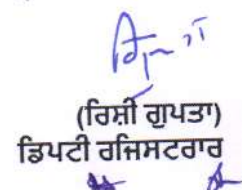 (ਰਿਸ਼ੀ ਗੁਪਤਾ)
ਡਿਪਟੀ ਰਜਿਸਟਰਾਰ